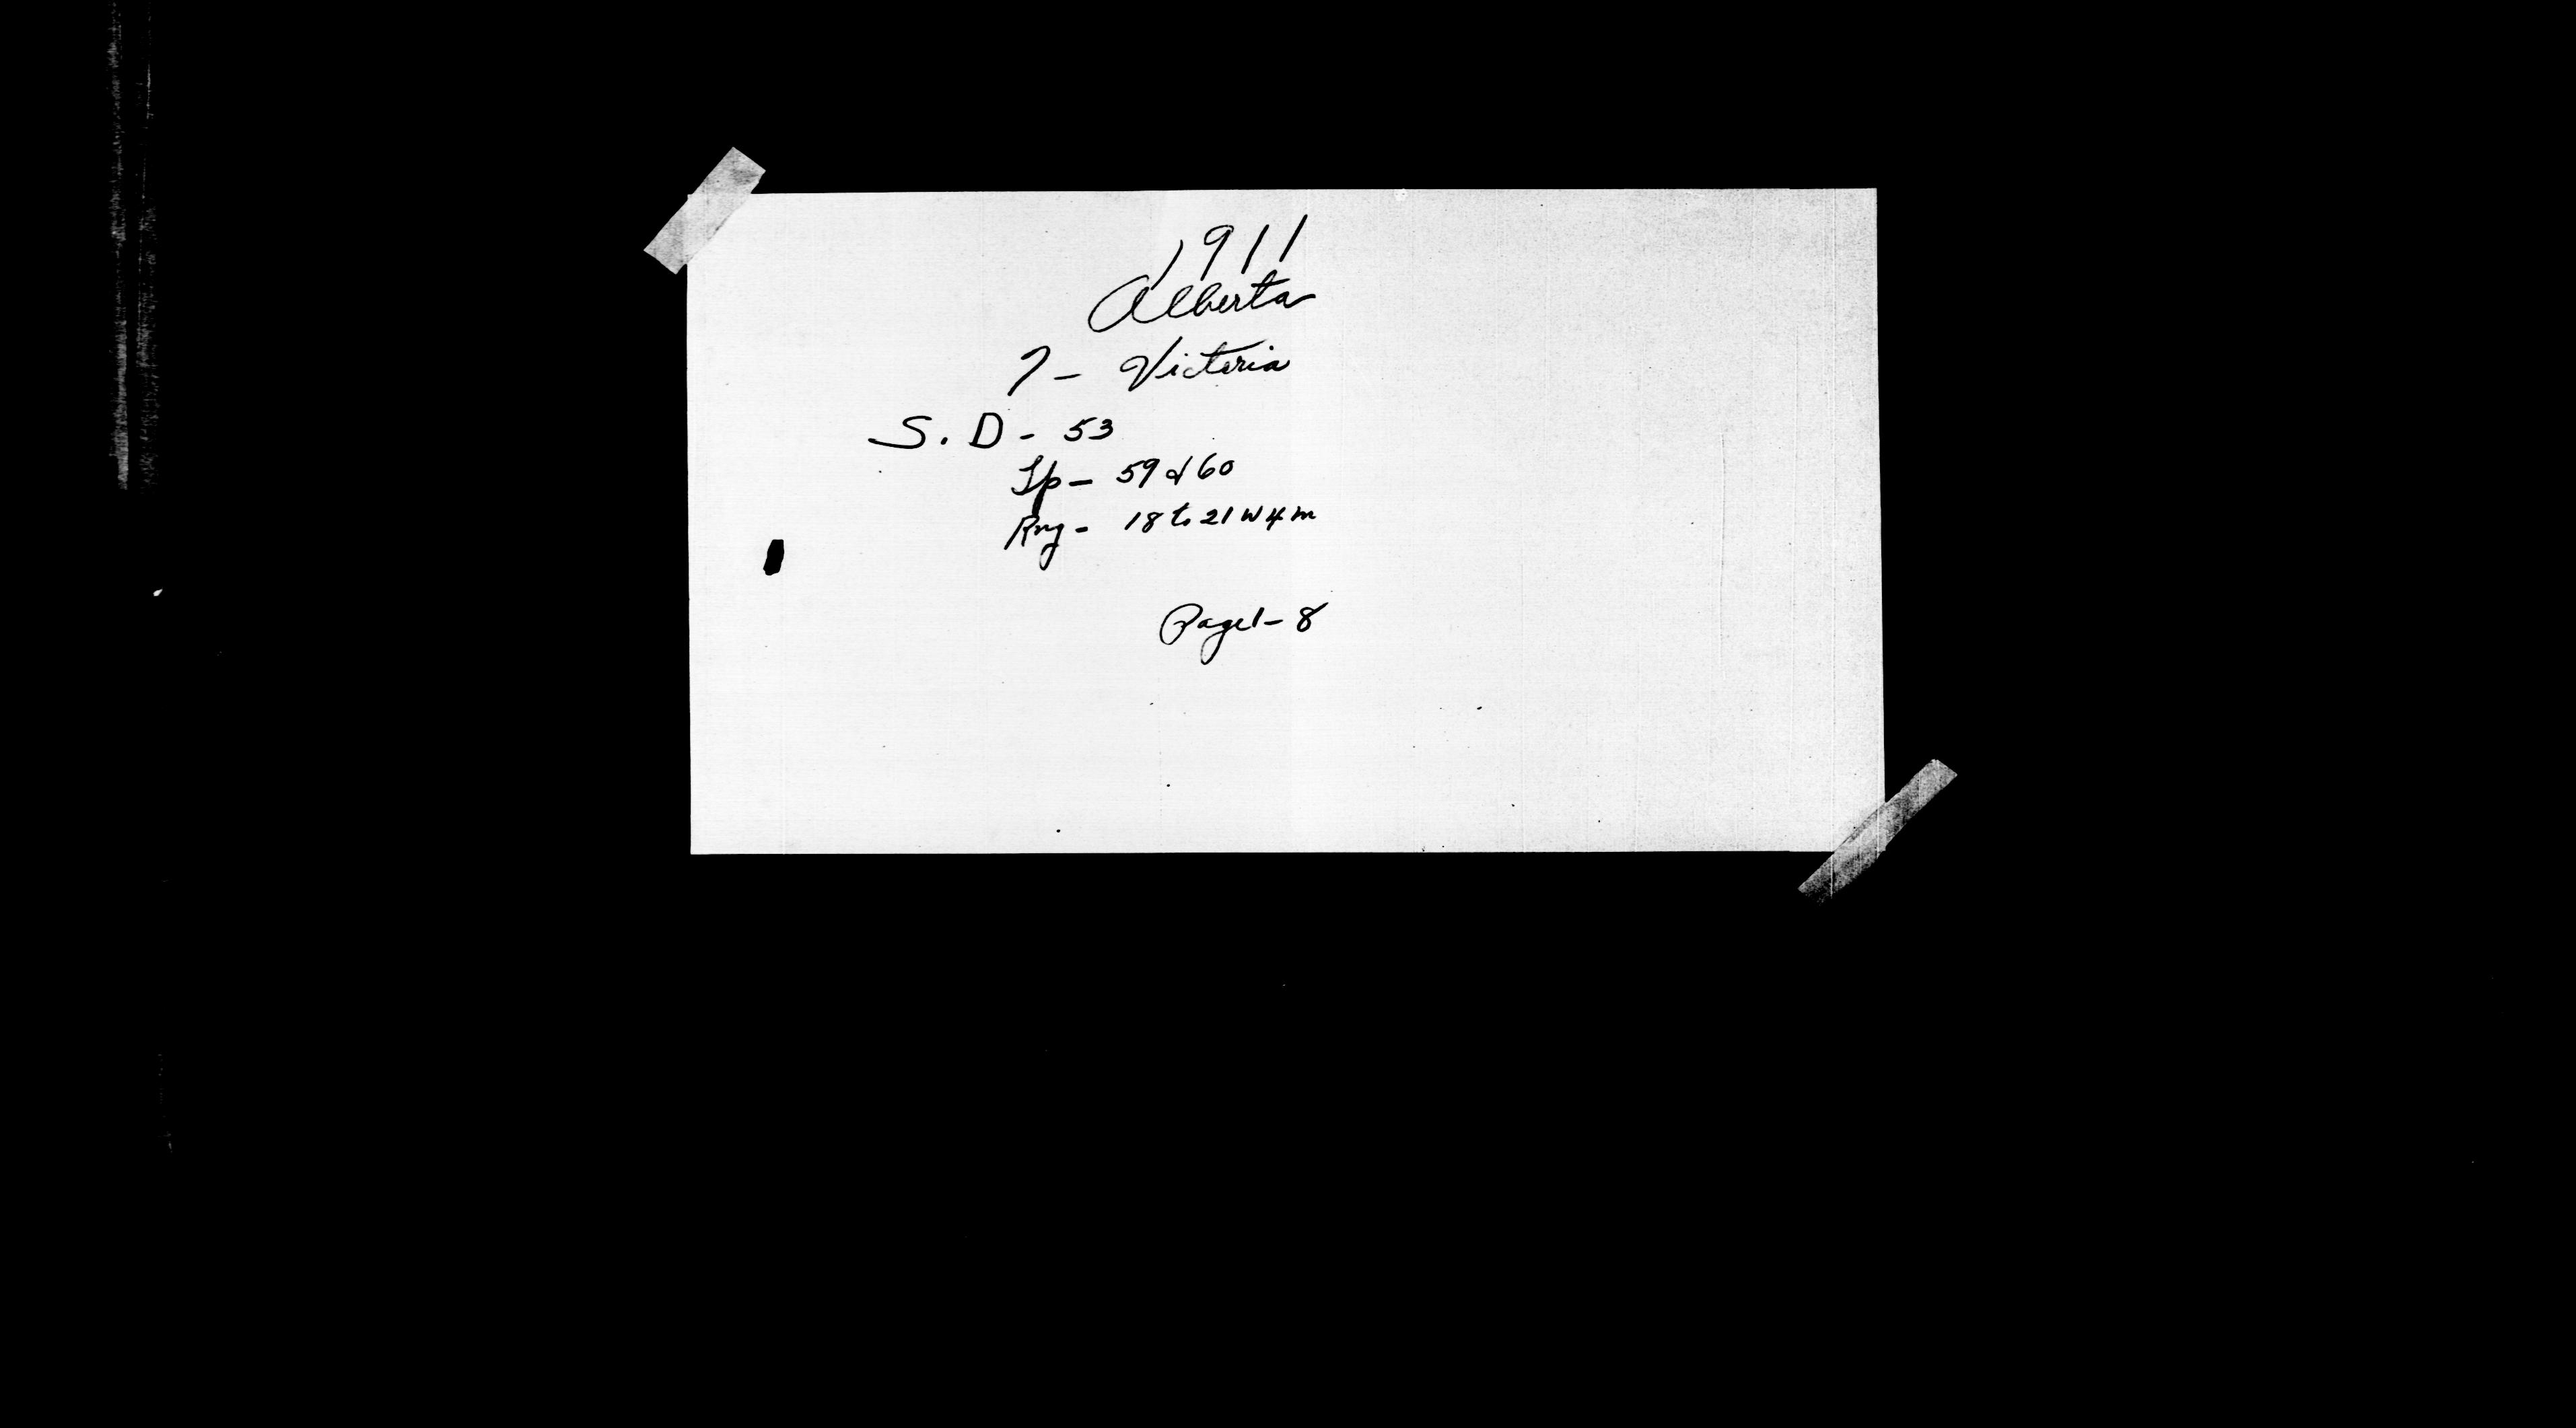 1911
Alberta
7- Victoria
S. D - 53
Tp- 59 & 60
Rng- 18 to 21 W 4 m
Page 1-8